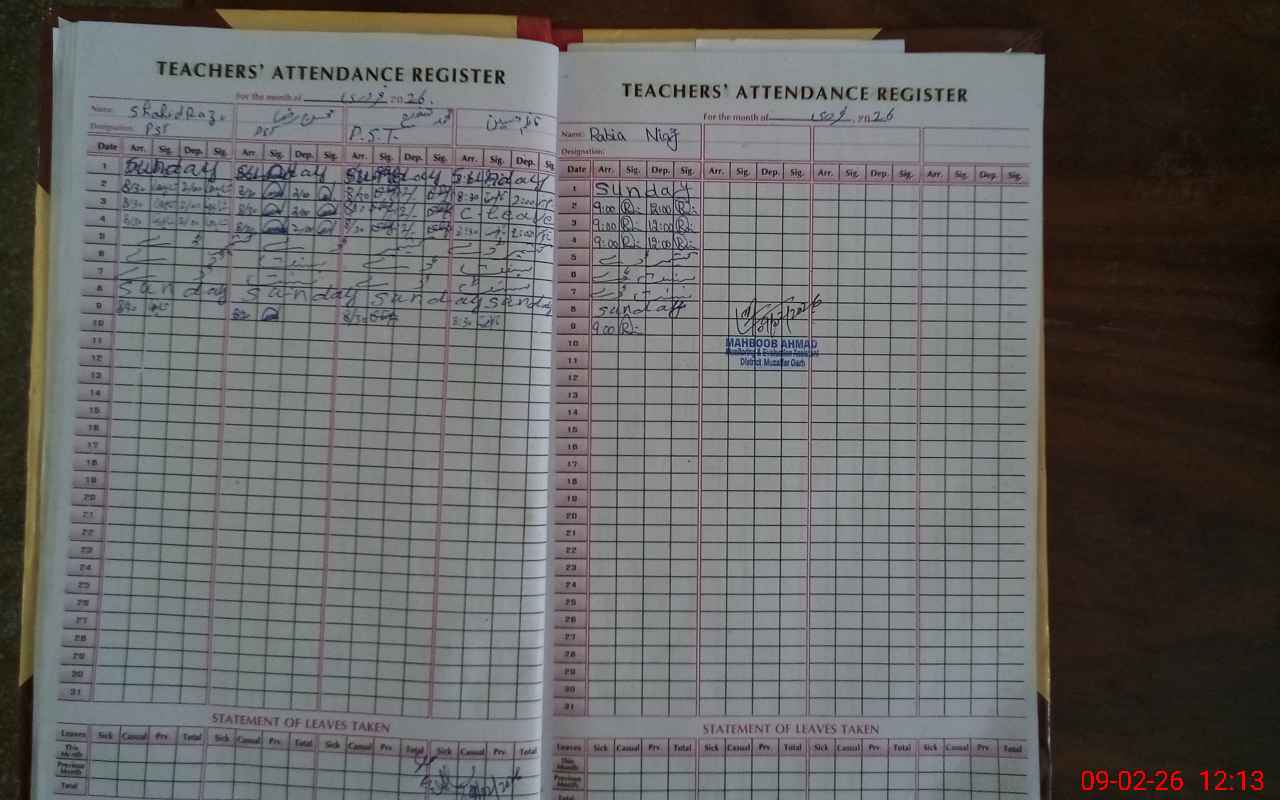 TEACHERS' ATTENDANCE REGISTER
For the month of فروری 2026.
Name: Shahid Raza محسن رضا محمد شفیع
Designation: PST PST P.S.T.
Date Arr. Sig. Dep. Sig. Arr. Sig. Dep. Sig. Arr. Sig. Dep. Sig. Arr. Sig. Dep. Sig.
1 Sunday Sunday Sunday Sunday
2 8/30 2/00 8/30 2/00 8/30 2/ 8:30 2:00
3 8/30 2/00 8/30 2/00 8/30 2/ C. leave
4 8/30 2/00 8/30 2:00 8/30 2/ 8:30 2:00
5
6
7
8 Sunday Sunday Sunday Sunday
9 8/30 8/30 8/30 8:30
10
11
12
13
14
15
16
17
18
19
20
21
22
23
24
25
26
27
28
29
30
31
STATEMENT OF LEAVES TAKEN
Leaves Sick Casual Prv. Total Sick Casual Prv. Total Sick Casual Prv. Total Sick Casual Prv. Total
This Month
Previous Month
Total
TEACHERS' ATTENDANCE REGISTER
For the month of فروری, 2026
Name: Rabia Niaz
Designation:
Date Arr. Sig. Dep. Sig. Arr. Sig. Dep. Sig. Arr. Sig. Dep. Sig. Arr. Sig. Dep. Sig.
1 Sunday
2 9:00 R: 12:00 R:
3 9:00 R: 12:00 R:
4 9:00 R: 12:00 R:
5
6
7
8 Sunday
9 9:00 R:
10
MAHBOOB AHMAD
Monitoring & Evaluation Assistant
11
District Muzaffar Garh
12
13
14
15
16
17
18
19
20
21
22
23
24
25
26
27
28
29
30
31
STATEMENT OF LEAVES TAKEN
Leaves Sick Casual Prv. Total Sick Casual Prv. Total Sick Casual Prv. Total Sick Casual Prv. Total
This Month
Previous Month
Total
09-02-26 12:13